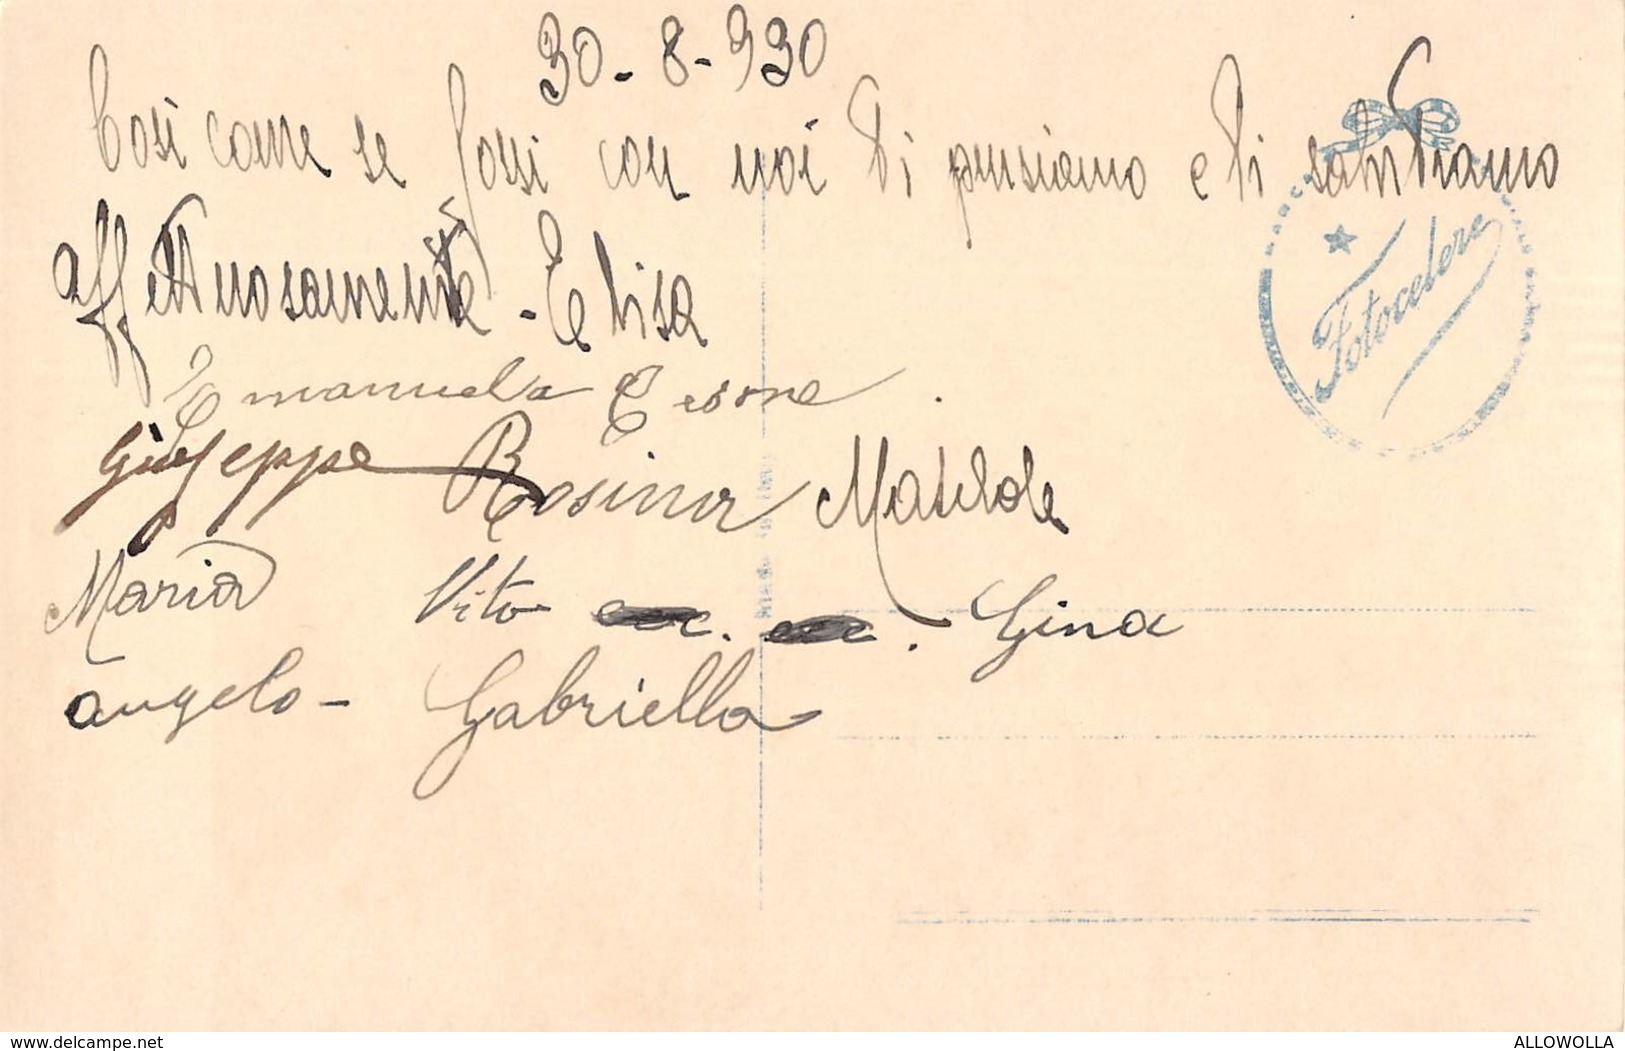 30-8-930
Così come se fossi con noi ti pensiamo e ti salutiamo
affettuosamente - Elisa
Emanuela
Giuseppe Rosina Matilde
Maria Vito Gina
Angelo - Gabriella
Fotocelere
www.delcampe.net
ALLOWOLLA